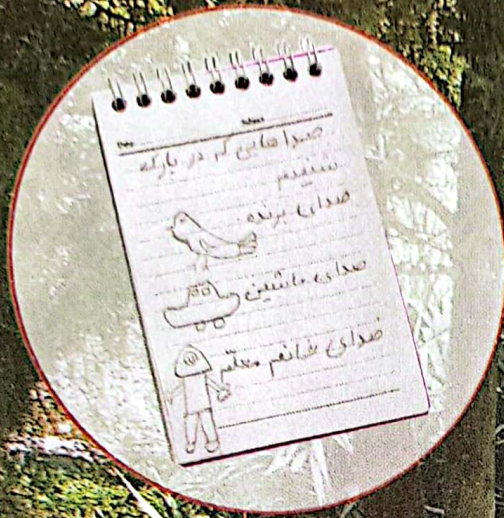 Date: Subject:
صداهایی که در پارک
شنیدم
صدای پرنده
صدای ماشین
صدای خانم معلّم